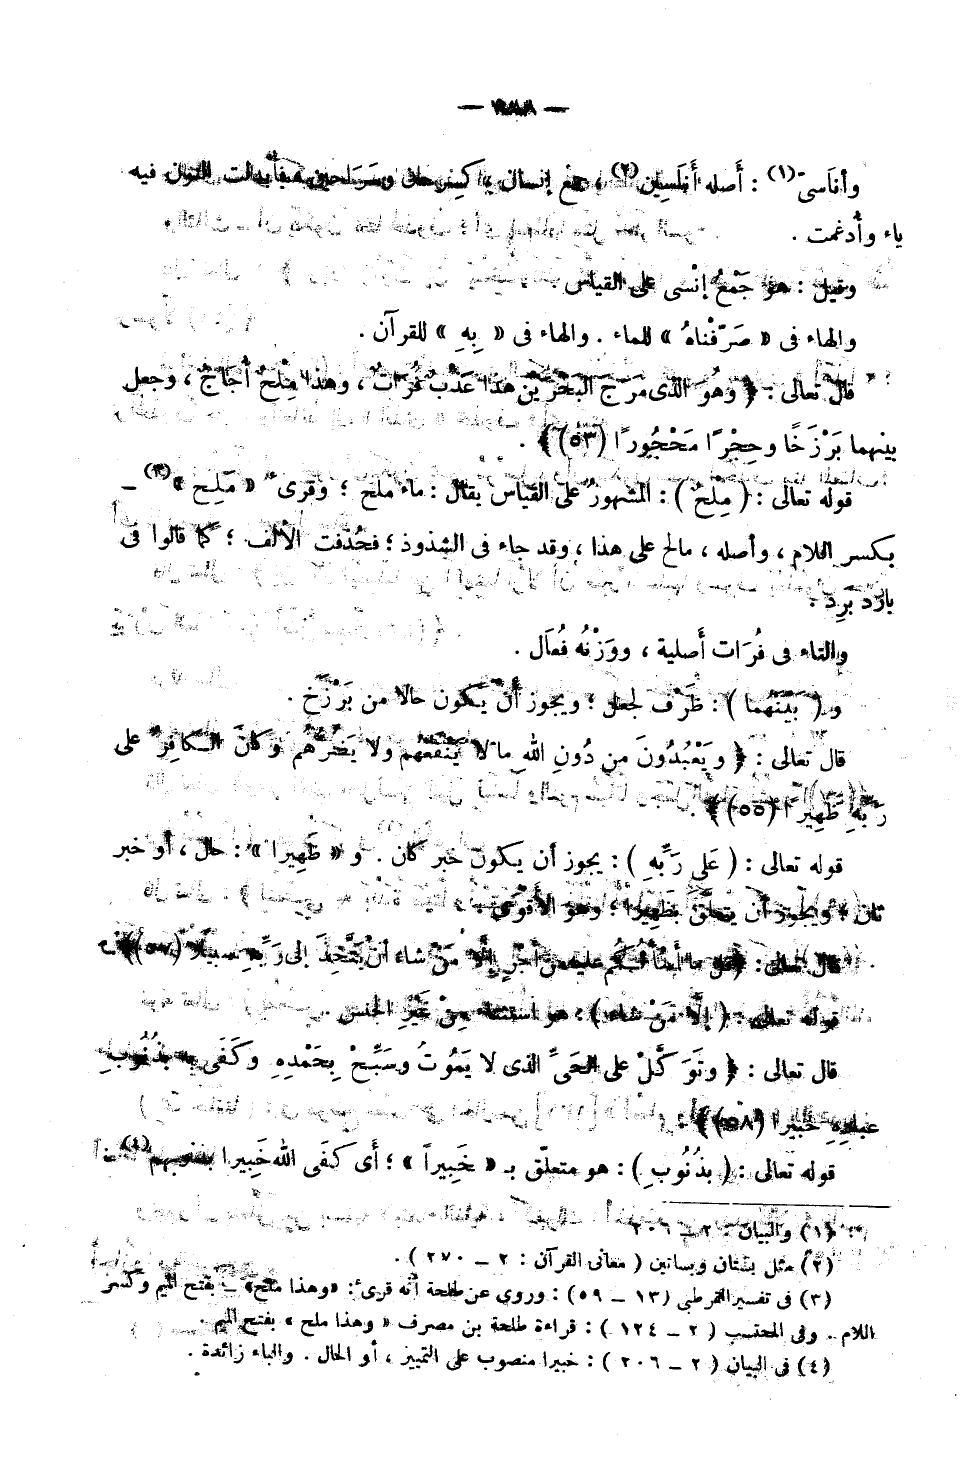 وأناسىّ (١) : أَصله أَنَاسِين (٢) ، جمع إنسان ، كسِرحان وسَرَاحين ، فأبدلت النون فيه
ياء وأدغمت .
وقيل : هو جَمْعُ إنْسى على القياس .
والهاء فى « صَرّفْناهُ » للماء . والهاء فى « بِهِ » للقرآن .
قال تعالى : ﴿ وهُوَ الذى مَرَجَ البَحْرَيْنِ هذا عَذْبٌ فُرَاتٌ ، وهذا مِلْحٌ أُجَاجٌ ، وجعل
بينهما بَرْزَخًا وحِجْرًا مَحْجُورًا (٥٣) ﴾ .
قوله تعالى : ( مِلْحٌ ) : المشهورُ على القياس يقال : ماء ملح ؛ وقرىء « مَلِـح » (٣) ـ
بكسر اللام ، وأصله ، مالح على هذا ، وقد جاء فى الشذوذ ؛ فحُذفت الألف ؛ كما قالوا فى
بارد برِد .
والتاء فى فُرَات أَصلية ، ووَزْنُه فُعَال .
و ( بَيْنَهُما ) : ظَرْف لجعل ؛ ويجوز أنْ يكون حالا من بَرْزَخ .
قال تعالى : ﴿ ويَعْبُدُونَ مِن دُونِ اللهِ ما لَا يَنْفَعُهم ولا يَضُرُّهم وكانَ الكافِرُ على
رَبِّهِ ظَهِيرًا (٥٥) ﴾ .
قوله تعالى : ( عَلَى رَبِّهِ ) : يجوز أن يكون خبر كان . و « ظَهِيرا » : حال ، أو خبر
ثان ؛ ويجوز أن يتعلّق بظَهِيرًا ؛ وهو الأقوى .
قال تعالى : ﴿ قل ما أَسْأَلُكم عليه من أَجْرٍ إلَّا مَنْ شاء أنْ يَتَّخِذَ إلى رَبِّه سبيلًا (٥٧) ﴾ .
قوله تعالى : ( إلَّا مَنْ شاء ) : هو استثناء مِنْ غَيْرِ الجنس .
قال تعالى : ﴿ وتَوَكَّلْ على الحَىِّ الذى لا يَمُوتُ وسَبِّحْ بِحَمْدِهِ وكَفَى به بذُنُوبِ
عبادِهِ خَبِيرًا (٥٨) ﴾ .
قوله تعالى : ( بذُنُوبِ ) : هو متعلّق بـ « خَبِيراً » ؛ أَى كَفَى اللهُ خَبِيرا بذنوبهم (٤) .
(١) والبيان : ٢ ـ ٢٠٦
(٢) مثل بستان وبساتين ( معانى القرآن : ٢ ـ ٢٧٠ ) .
(٣) فى تفسير القرطبى (١٣ ـ ٥٩) : وروي عن طلحة أنه قرىء : «وهذا ملح» ـ بفتح الميم وكسر
اللام . وفى المحتسب ( ٢ ـ ١٢٤ ) : قراءة طلحة بن مصرف « وهذا ملح » بفتح الميم .
(٤) فى البيان ( ٢ ـ ٢٠٦ ) : خبيرا منصوب على التمييز ، أو الحال . والباء زائدة .